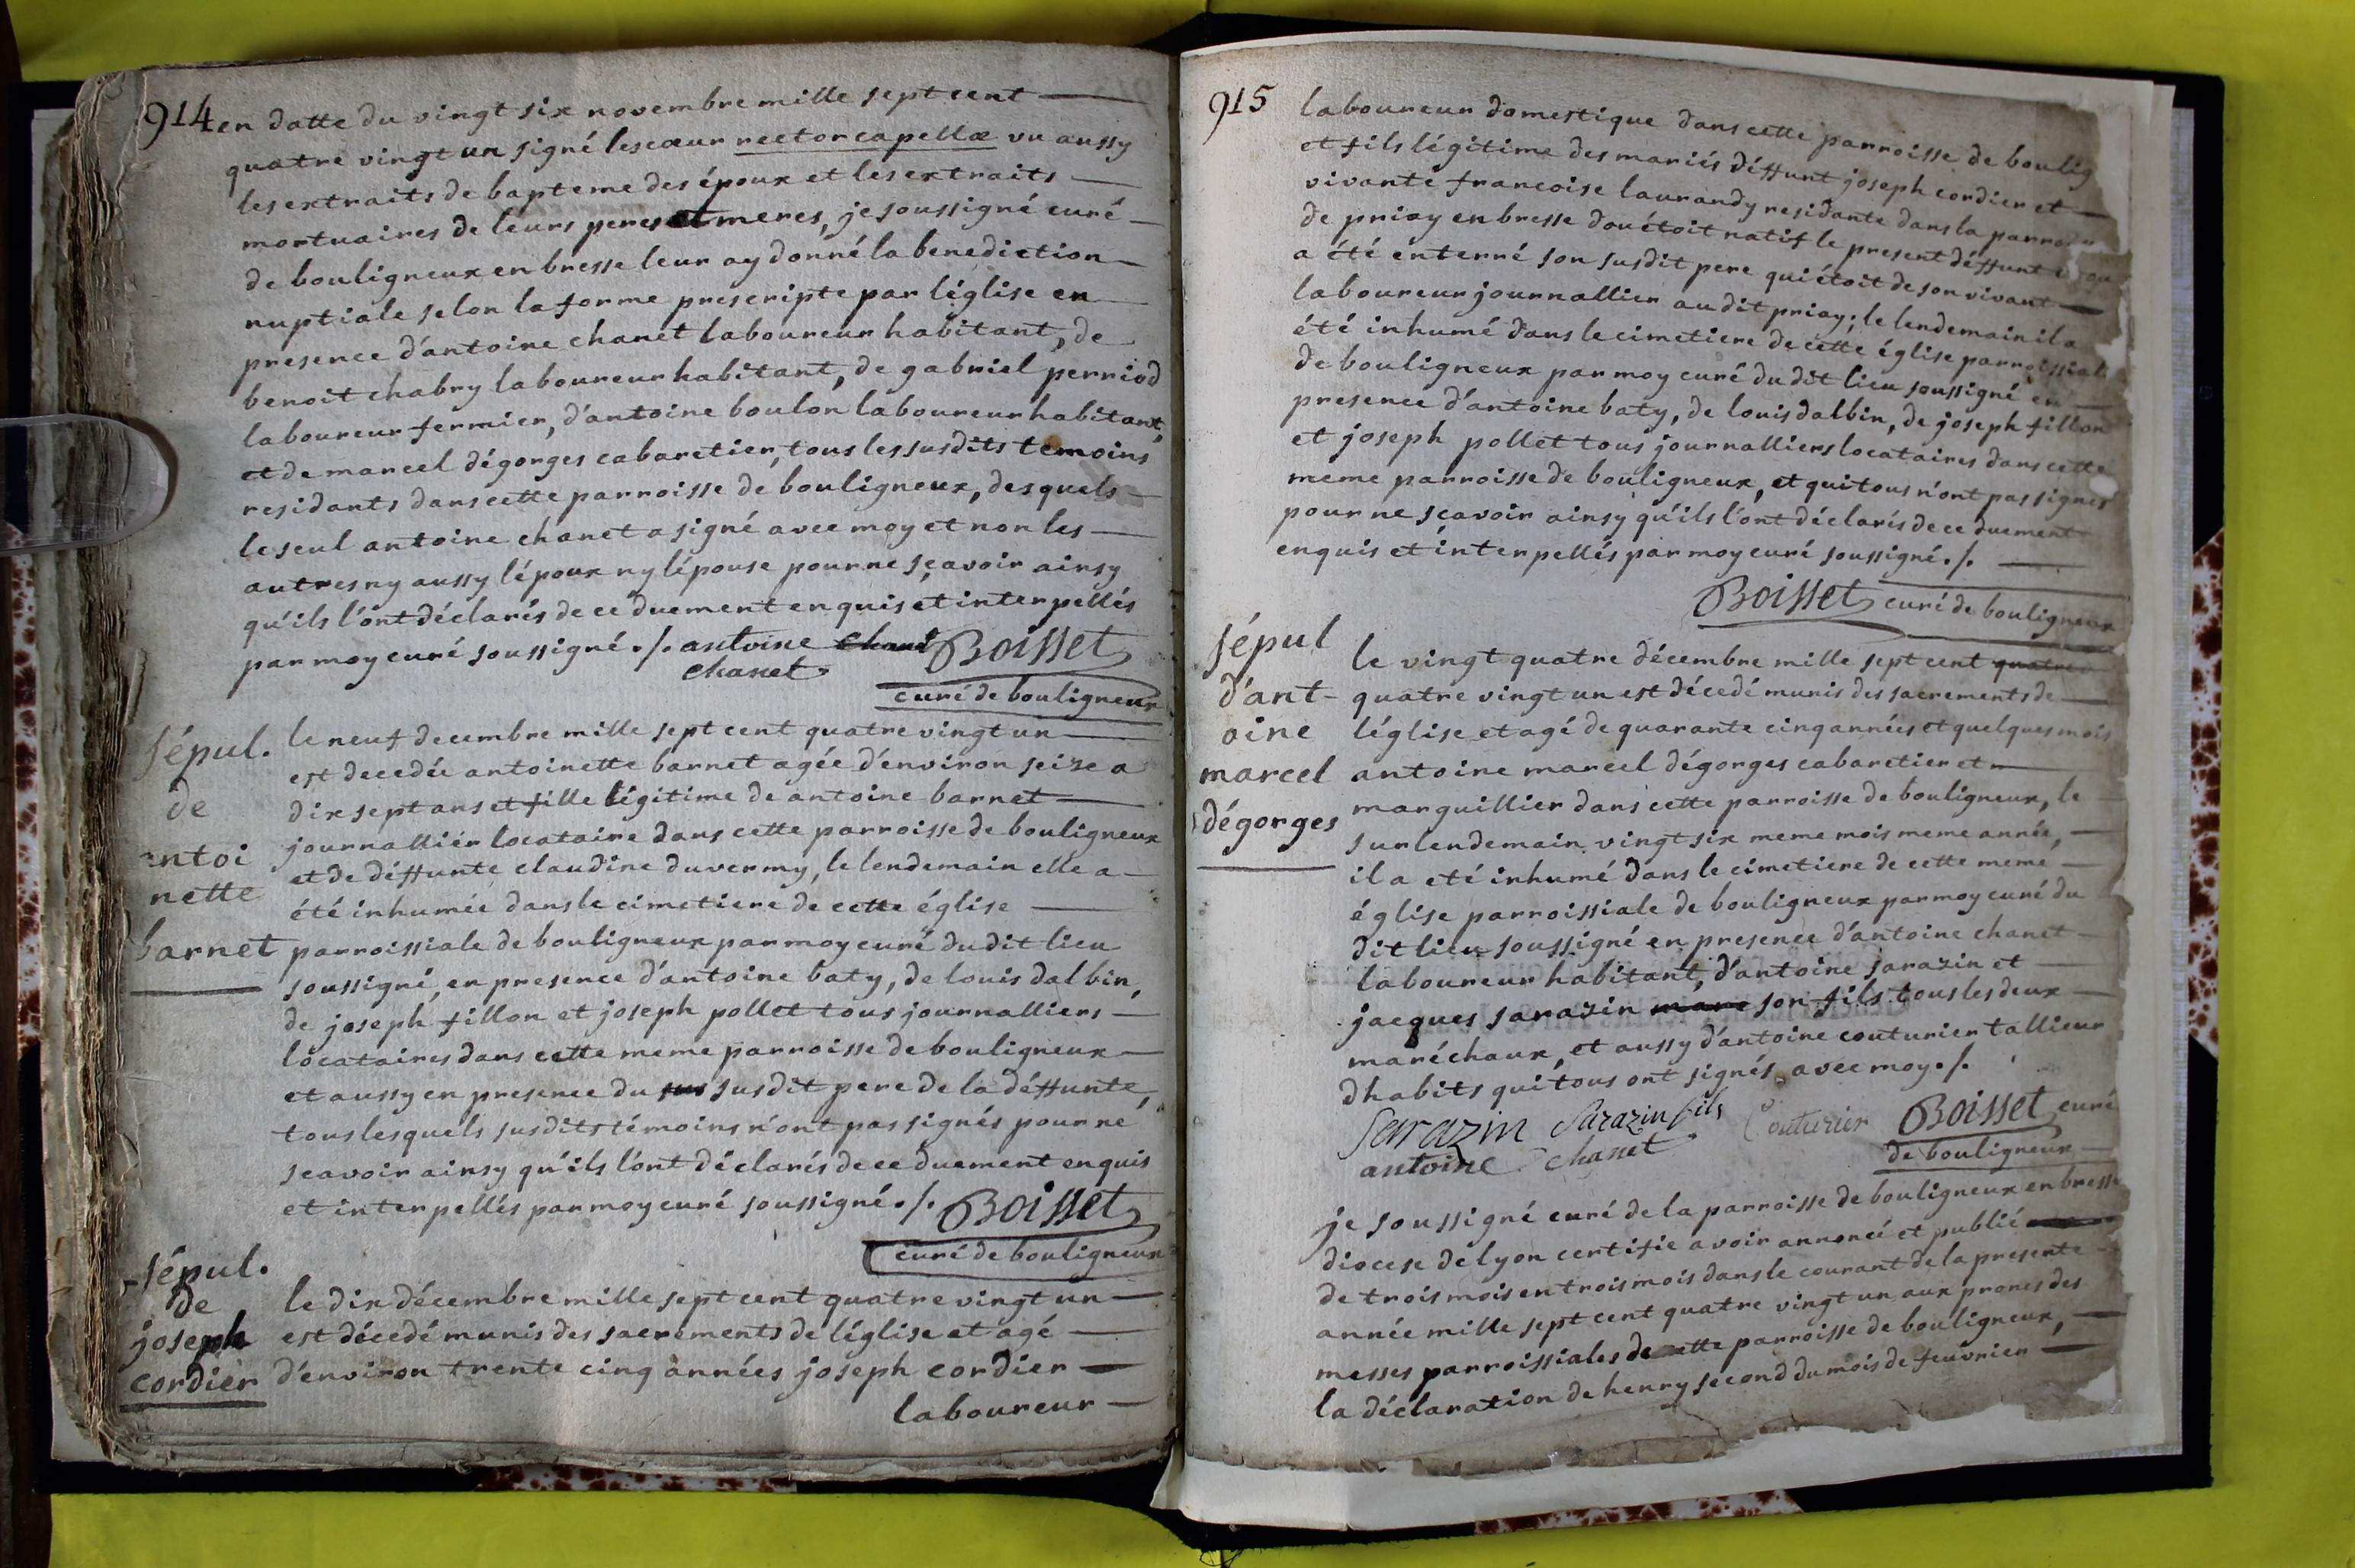 914 en datte du vingt six novembre mille sept cent
quatre vingt un signé lescœur rector capellæ vu aussy
les extraits de bapteme des époux et les extraits
mortuaires de leurs peres et meres, je soussigné curé
de bouligneux en bresse leur ay donné la benediction
nuptiale selon la forme prescripte par léglise en
presence d'antoine chanet laboureur habitant, de
benoit chabry laboureur habitant, de gabriel perriod
laboureur fermier, d'antoine boulon laboureur habitant,
et de marcel dégorges cabaretier, tous les susdits temoins
residants dans cette parroisse de bouligneux, desquels
le seul antoine chanet a signé avec moy et non les
autres ny aussy lépoux ny lépouse pour ne sçavoir ainsy
qu'ils l'ont déclarés de ce duement enquis et interpellés
par moy curé soussigné ./. antoine chanet Boisset
chanet
curé de bouligneux
sépul.
de
antoi
nette
barnet
le neuf decembre mille sept cent quatre vingt un
est decedée antoinette barnet agée d'environ seize a
dix sept ans et fille légitime de antoine barnet
journallier locataire dans cette parroisse de bouligneux
et de déffunte claudine duvermy, le lendemain elle a
été inhumée dans le cimetiere de cette église
parroissiale de bouligneux par moy curé du dit lieu
soussigné, en presence d'antoine baty, de louis dalbin,
de joseph fillon et joseph pollet tous journalliers
locataires dans cette meme parroisse de bouligneux
et aussy en presence du sus susdit pere de la déffunte,
tous lesquels susdits témoins n'ont pas signés pour ne
scavoir ainsy qu'ils l'ont déclarés de ce duement enquis
et interpellés par moy curé soussigné ./. Boisset
curé de bouligneux
sépul.
de
joseph
cordier
le dix décembre mille sept cent quatre vingt un
est décedé munis des sacrements de léglise et agé
d'environ trente cinq années joseph cordier
laboureur
915
laboureur domestique dans cette parroisse de boulig
et fils légitime des mariés déffunt joseph cordier et
vivante francoise laurandy residante dans la parroi
de priay en bresse dou étoit natif le present déffunt
a été enterré son susdit pere qui étoit de son vivant
laboureur journallier au dit priay; le lendemain il a
été inhumé dans le cimetiere de cette église parroissial
de bouligneux par moy curé du dit lieu soussigné en
presence d'antoine baty, de louis dalbin, de joseph fillon
et joseph pollet tous journalliers locataires dans cette
meme parroisse de bouligneux, et qui tous n'ont pas signés
pour ne scavoir ainsy qu'ils l'ont déclarés de ce duement
enquis et interpellés par moy curé soussigné ./.
Boisset curé de bouligneux
sépul
d'ant-
oine
marcel
dégorges
le vingt quatre décembre mille sept cent quatre
quatre vingt un est décedé munis des sacrements de
léglise et agé de quarante cinq années et quelques mois
antoine marcel dégorges cabaretier et
marguillier dans cette parroisse de bouligneux, le
surlendemain vingt six meme mois meme année,
il a eté inhumé dans le cimetiere de cette meme
église parroissiale de bouligneux par moy curé du
dit lieu soussigné en presence d'antoine chanet
laboureur habitant, d'antoine sarazin et
jacques sarazin mare son fils tous les deux
maréchaux, et aussy d'antoine couturier tallieur
dhabits qui tous ont signés avec moy ./.
Sarazin Sarazin fils Couturier Boisset curé
antoine chanet de bouligneux
je soussigné curé de la parroisse de bouligneux en bresse
diocese de lyon certifie avoir annoncé et publié
de trois mois en trois mois dans le courant de la presente
année mille sept cent quatre vingt un aux prones des
messes parroissiales de cette parroisse de bouligneux,
la déclaration de henry second du mois de feuvrier